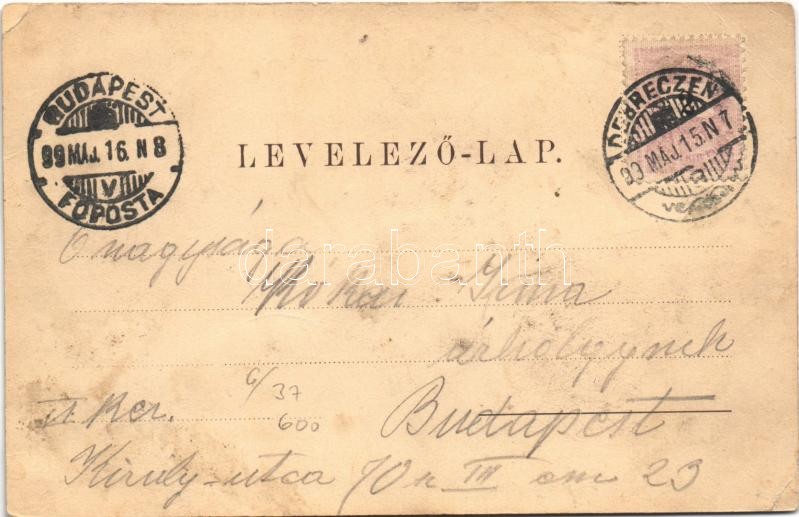 BUDAPEST
99 MÁJ. 16. N 8
V
FŐPOSTA
DEBRECZEN
99 MÁJ. 15. N 7
LEVELEZŐ-LAP.
darabanth
Ő nagysága
Irma
úrhölgynek
6/37
600
Budapest
ker.
Király-utca 70 III em 23